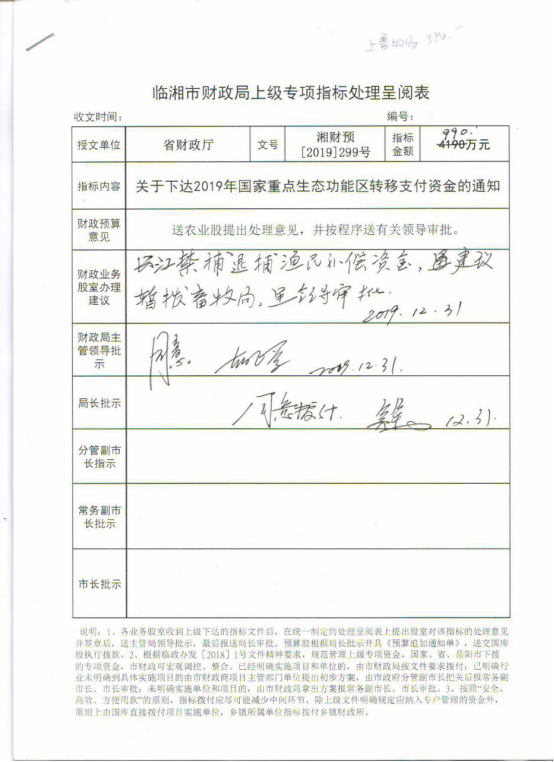 临湘市财政局上级专项指标处理呈阅表
收文时间： 编号：
授文单位 省财政厅 文号 湘财预[2019]299号 指标金额 990. 4190万元
指标内容 关于下达2019年国家重点生态功能区转移支付资金的通知
财政预算意见 送农业股提出处理意见，并按程序送有关领导审批。
财政业务股室办理建议
长江禁捕退捕渔民补偿资金，建议
暂拨畜牧局，呈领导审批.
2019.12.31
财政局主管领导批示 同意。 2019.12.31.
局长批示 同意拨付. 12.31.
分管副市长指示
常务副市长批示
市长批示
说明：1、各业务股室收到上级下达的指标文件后，在统一制定的处理呈阅表上提出股室对该指标的处理意见
并签章后，送主管局领导批示，最后报送局长审批。预算股根据局长批示开具《预算追加通知单》，送交国库
股执行拨款。2、根据临政办发［2018］1号文件精神要求，规范管理上级专项资金。国家、省、岳阳市下拨
的专项资金，市财政可宏观调控、整合。已经明确实施项目和单位的，由市财政局按文件要求拨付；已明确行
业未明确到具体实施项目的由市财政商项目主管部门单位提出初步方案，由市政府分管副市长把关后报常务副
市长、市长审批；未明确实施单位和项目的，由市财政局拿出方案报常务副市长、市长审批。3、按照“安全、
高效、方便用款”的原则，指标拨付应尽可能减少中间环节，除上级文件明确规定应纳入专户管理的资金外，
原则上由国库直接拨付项目实施单位，乡镇所属单位指标拨付乡镇财政所。